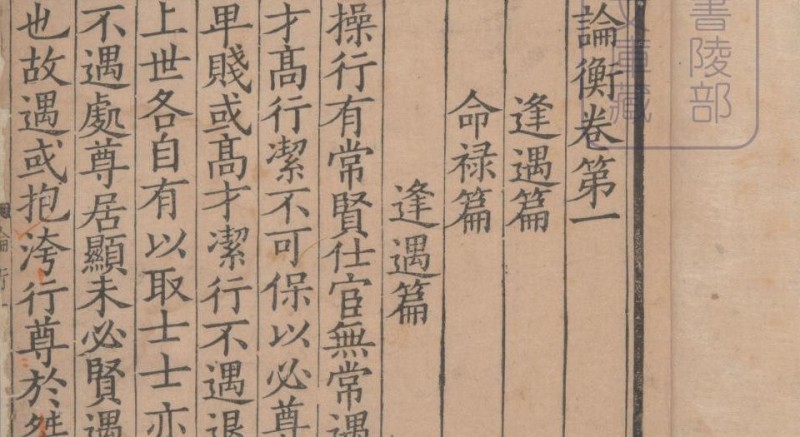 書陵部
論衡卷第一
逢遇篇
命禄篇
逢遇篇
操行有常賢仕宦無常遇
才髙行潔不可保以必尊
卑賤或髙才潔行不遇退
上世各自有以取士士亦
不遇處尊居顯未必賢遇
也故遇或抱洿行尊於